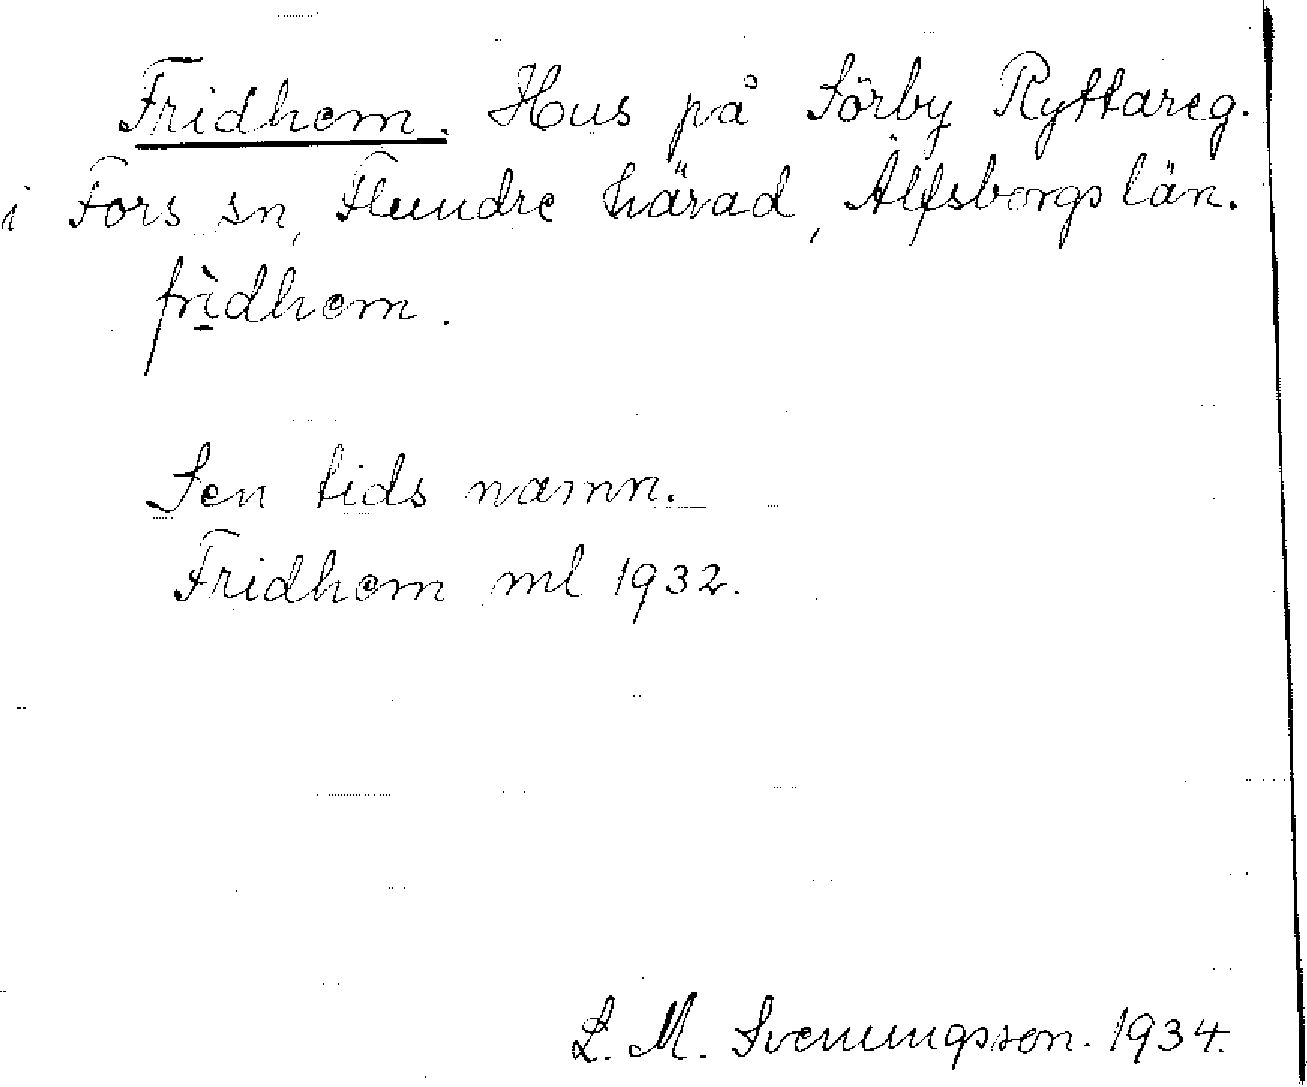 Fridhem. Hus på Sörby Ryttareg.
i Fors sn, Flundre härad, Älfsborgs län.
frìdhem.
Sen tids namn.
Fridhem ml 1932.
L. M. Svenungsson. 1934.